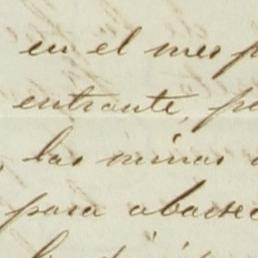 en el mes p
entrante, pe
las minas
para abaste